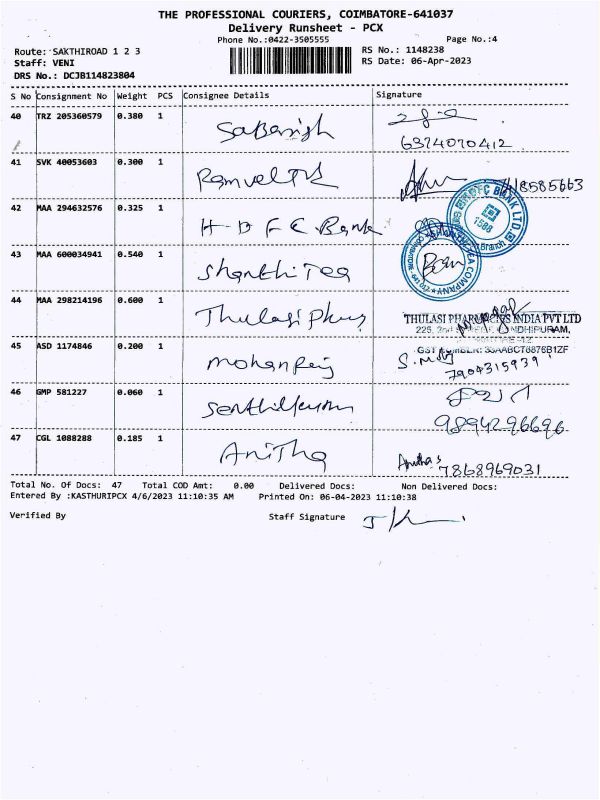 THE PROFESSIONAL COURIERS, COIMBATORE-641037
Delivery Runsheet - PCX
Phone No.:0422-3505555
Page No.:4
Route: SAKTHIROAD 1 2 3
RS No.: 1148238
Staff: VENI
RS Date: 06-Apr-2023
DRS No.: DCJB114823804
S No Consignment No Weight PCS Consignee Details Signature
40 TRZ 205360579 0.380 1 Sabarish
6374070412
41 SVK 40053603 0.300 1
42 MAA 294632576 0.325 1 HDFC Bank
HDFC BANK LTD
1588
Branch
43 MAA 600034941 0.540 1 Shanthi Tea
TEA COMPANY
44 MAA 298214196 0.600 1 Thulasi
THULASI PHARMACIES INDIA PVT LTD
GANDHIPURAM,
45 ASD 1174846 0.200 1 Mohanraj
GST NUMBER: 33AABCT6876B1ZF
7904315939
46 GMP 581227 0.060 1 Senthilkumar
9894296696
47 CGL 1088288 0.185 1 Anitha
Anitha s
7868969031
Total No. Of Docs: 47 Total COD Amt: 0.00 Delivered Docs: Non Delivered Docs:
Entered By :KASTHURIPCX 4/6/2023 11:10:35 AM Printed On: 06-04-2023 11:10:38
Verified By Staff Signature